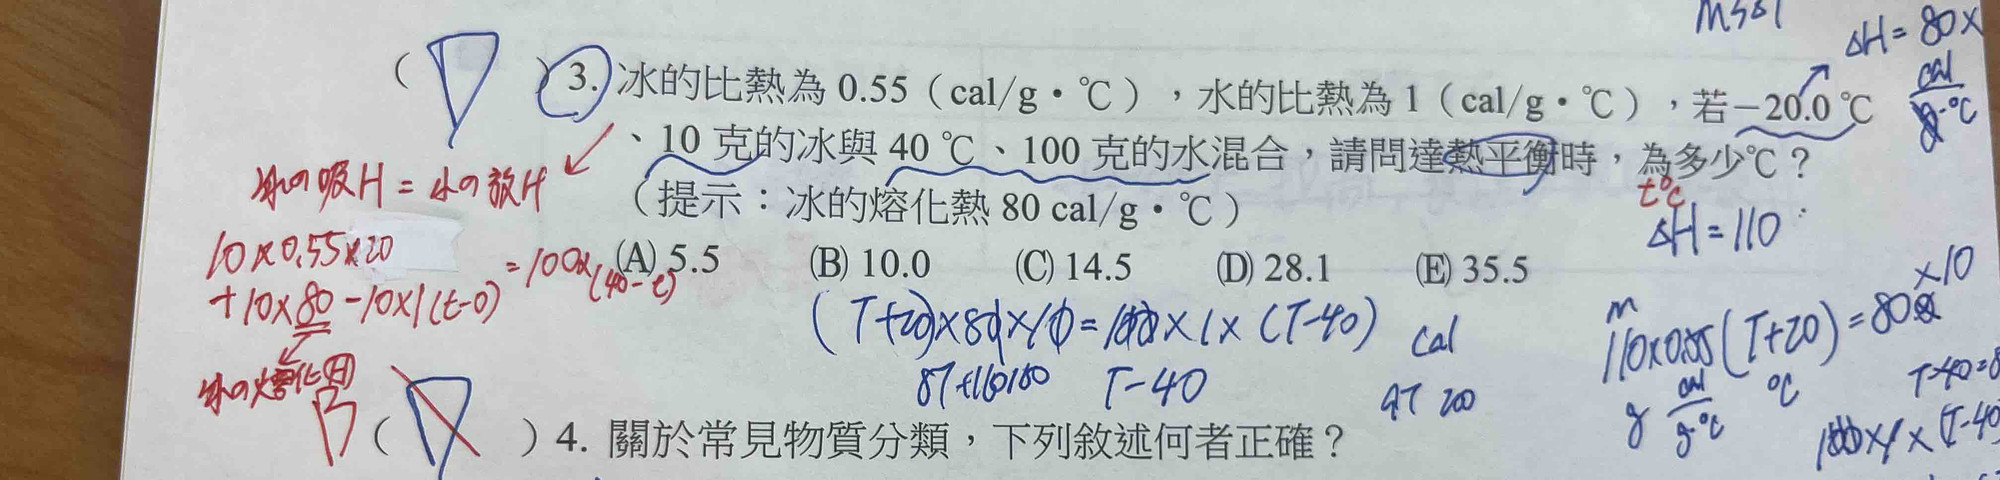 ΔH = 80 x
cal
g·℃
( D ) 3. 冰的比熱為 0.55（cal/g・℃），水的比熱為 1（cal/g・℃），若－20.0 ℃
、10 克的冰與 40 ℃、100 克的水混合，請問達熱平衡時，為多少℃？
t℃
冰の吸H = 水の放H
（提示：冰的熔化熱 80 cal/g・℃）
ΔH = 110
10×0.55×20
+10×80-10×1(t-0) = 100×(40-t)
(A) 5.5 (B) 10.0 (C) 14.5 (D) 28.1 (E) 35.5
×10
(T+20)×80×10 = 100×1×(T-40)
cal
T-40
110×0.55(T+20) = 80
g cal ℃
g·℃
冰の熔化
100×1×(T-40
( D ) 4. 關於常見物質分類，下列敘述何者正確？